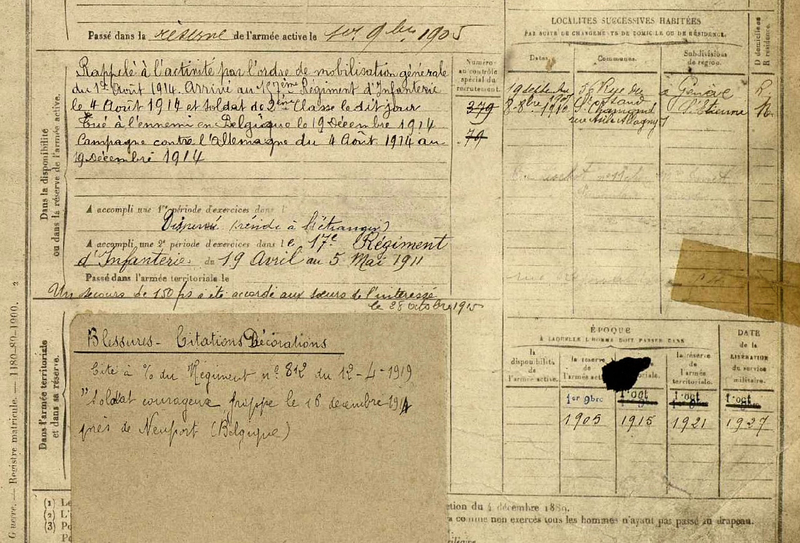 Passé dans la réserve de l'armée active le 1er 9bre 1905
Dans la disponibilité
ou dans la réserve de l'armée active.
Rappelé à l'activité par l'ordre de mobilisation générale
du 1er Août 1914. Arrivé au 157ème Régiment d'Infanterie
le 4 Août 1914 et soldat de 2ème Classe le dit jour
Tué à l'ennemi en Belgique le 19 Décembre 1914
Campagne contre l'Allemagne du 4 Août 1914 au
19 Décembre 1914
A accompli une 1re période d'exercices dans l
Dispensé (réside à l'étranger)
A accompli une 2e période d'exercices dans le 17e Régiment
d'Infanterie du 19 Avril au 5 Mai 1911
Passé dans l'armée territoriale le
Un secours de 150 fs a été accordé aux sœurs de l'intéressé
le 28 octobre 1915
Dans l'armée territoriale
et dans sa réserve.
Blessures - Citations Décorations
Cité à l'o/ du Régiment n° 812 du 12-4-1919
"Soldat courageux frappé le 16 décembre 1914
près de Neuport (Belgique)
Numéro
au contrôle
spécial du
recrutement.
379
79
LOCALITÉS SUCCESSIVES HABITÉES
PAR SUITE DE CHANGEMENTS DE DOMICILE OU DE RÉSIDENCE.
Dates.
Communes.
Subdivisions
de région.
D domicile
R résidence.
19 septembre
35 Rue de
à Genève
R
St Etienne
R
ÉPOQUE
À LAQUELLE L'HOMME DOIT PASSER DANS
DATE
de la
LIBÉRATION
du service
militaire.
la
disponibilité
de
l'armée active.
la réserve
de
l'armée active.
la réserve
de l'armée
territoriale.
1er 9bre
1905
1 oct
1915
1 oct
1921
1 oct
1927
Guerre. — Registre matricule. — 1180-89-1900.
(1) Le
(2) L'
(3) Po
tion du 4 décembre 1889.
a comme non exercés tous les hommes n'ayant pas passé au drapeau.